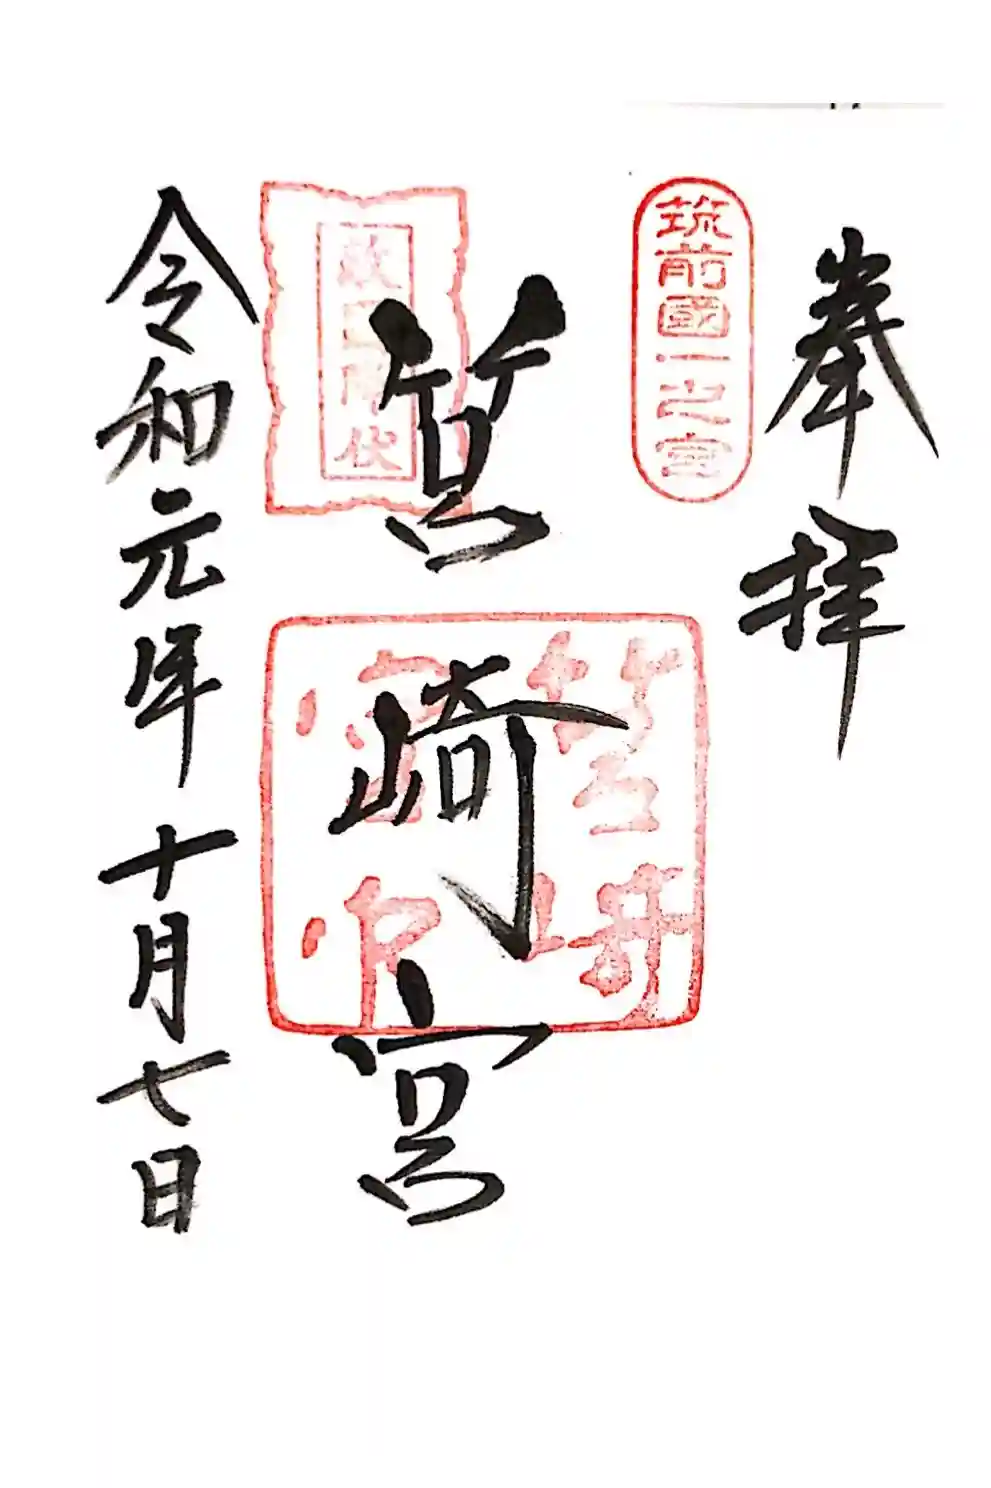 奉拝
筑前國一之宮
筥崎宮
敵国降伏
筥崎宮印
令和元年十月七日